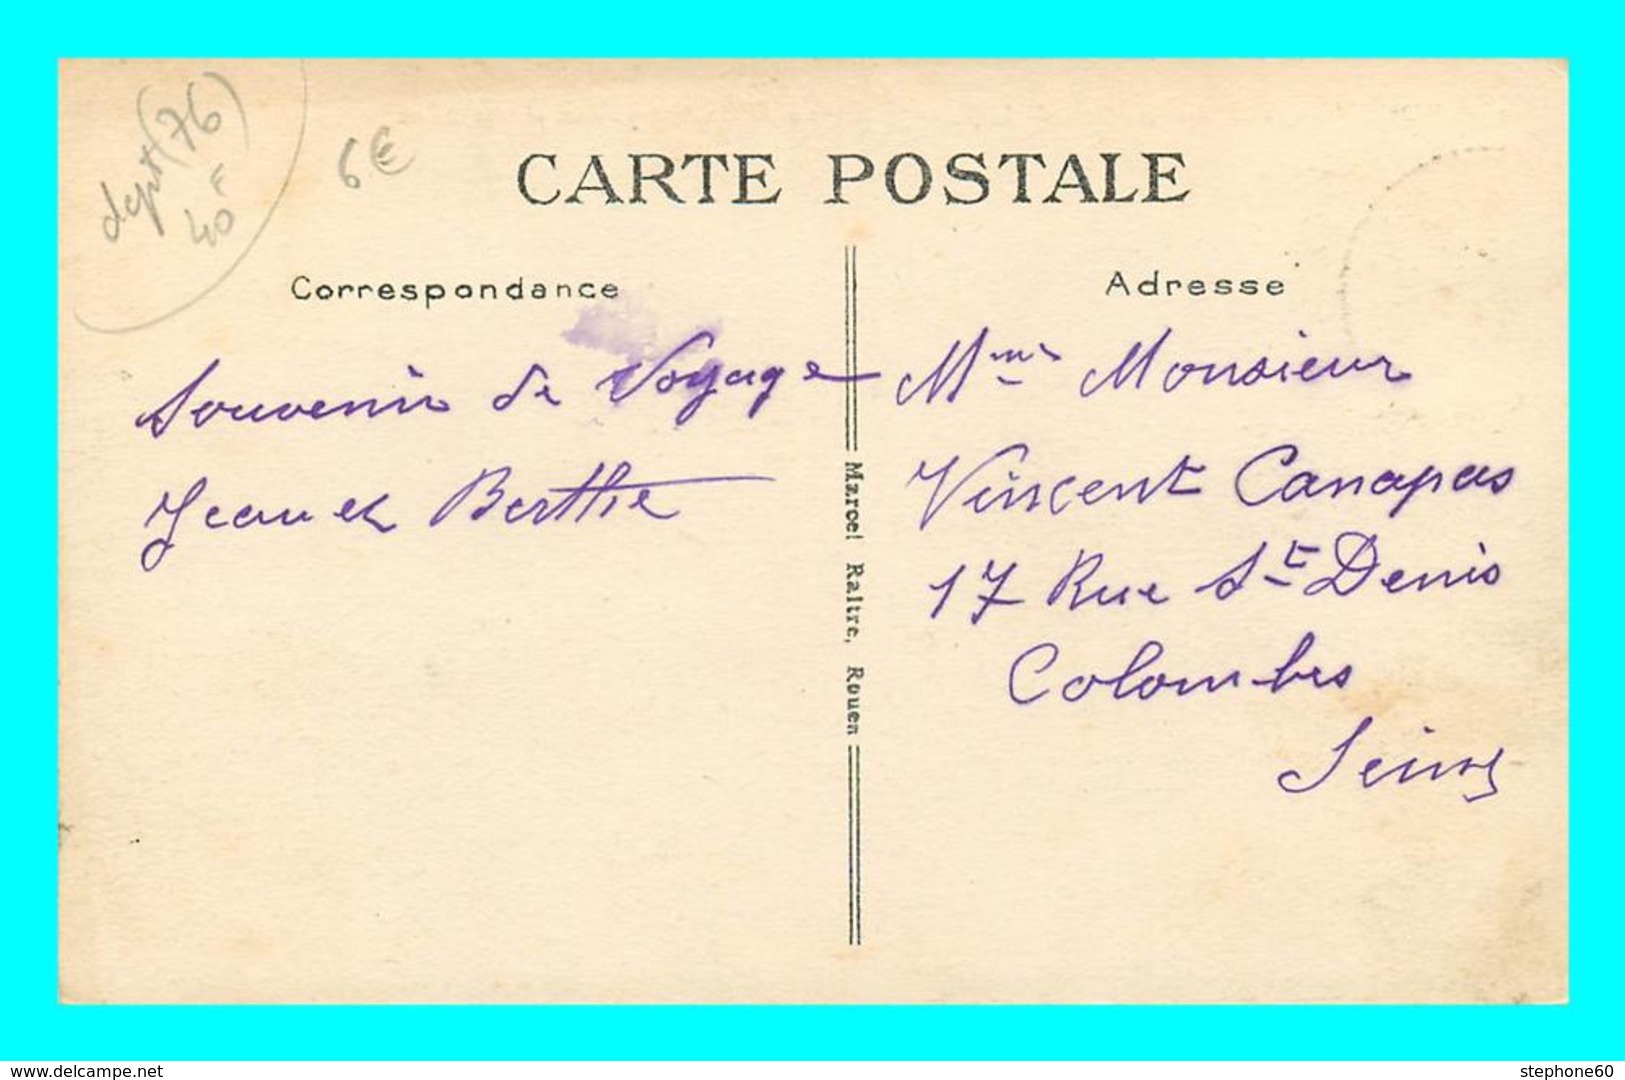 dept (76)
40 F
6€
CARTE POSTALE
Correspondance
Souvenir de Voyage
Jean et Berthe
Marcel Raitre, Rouen
Adresse
Mme Monsieur
Vincent Canapas
17 Rue St Denis
Colombes
Seine
www.delcampe.net
stephone60